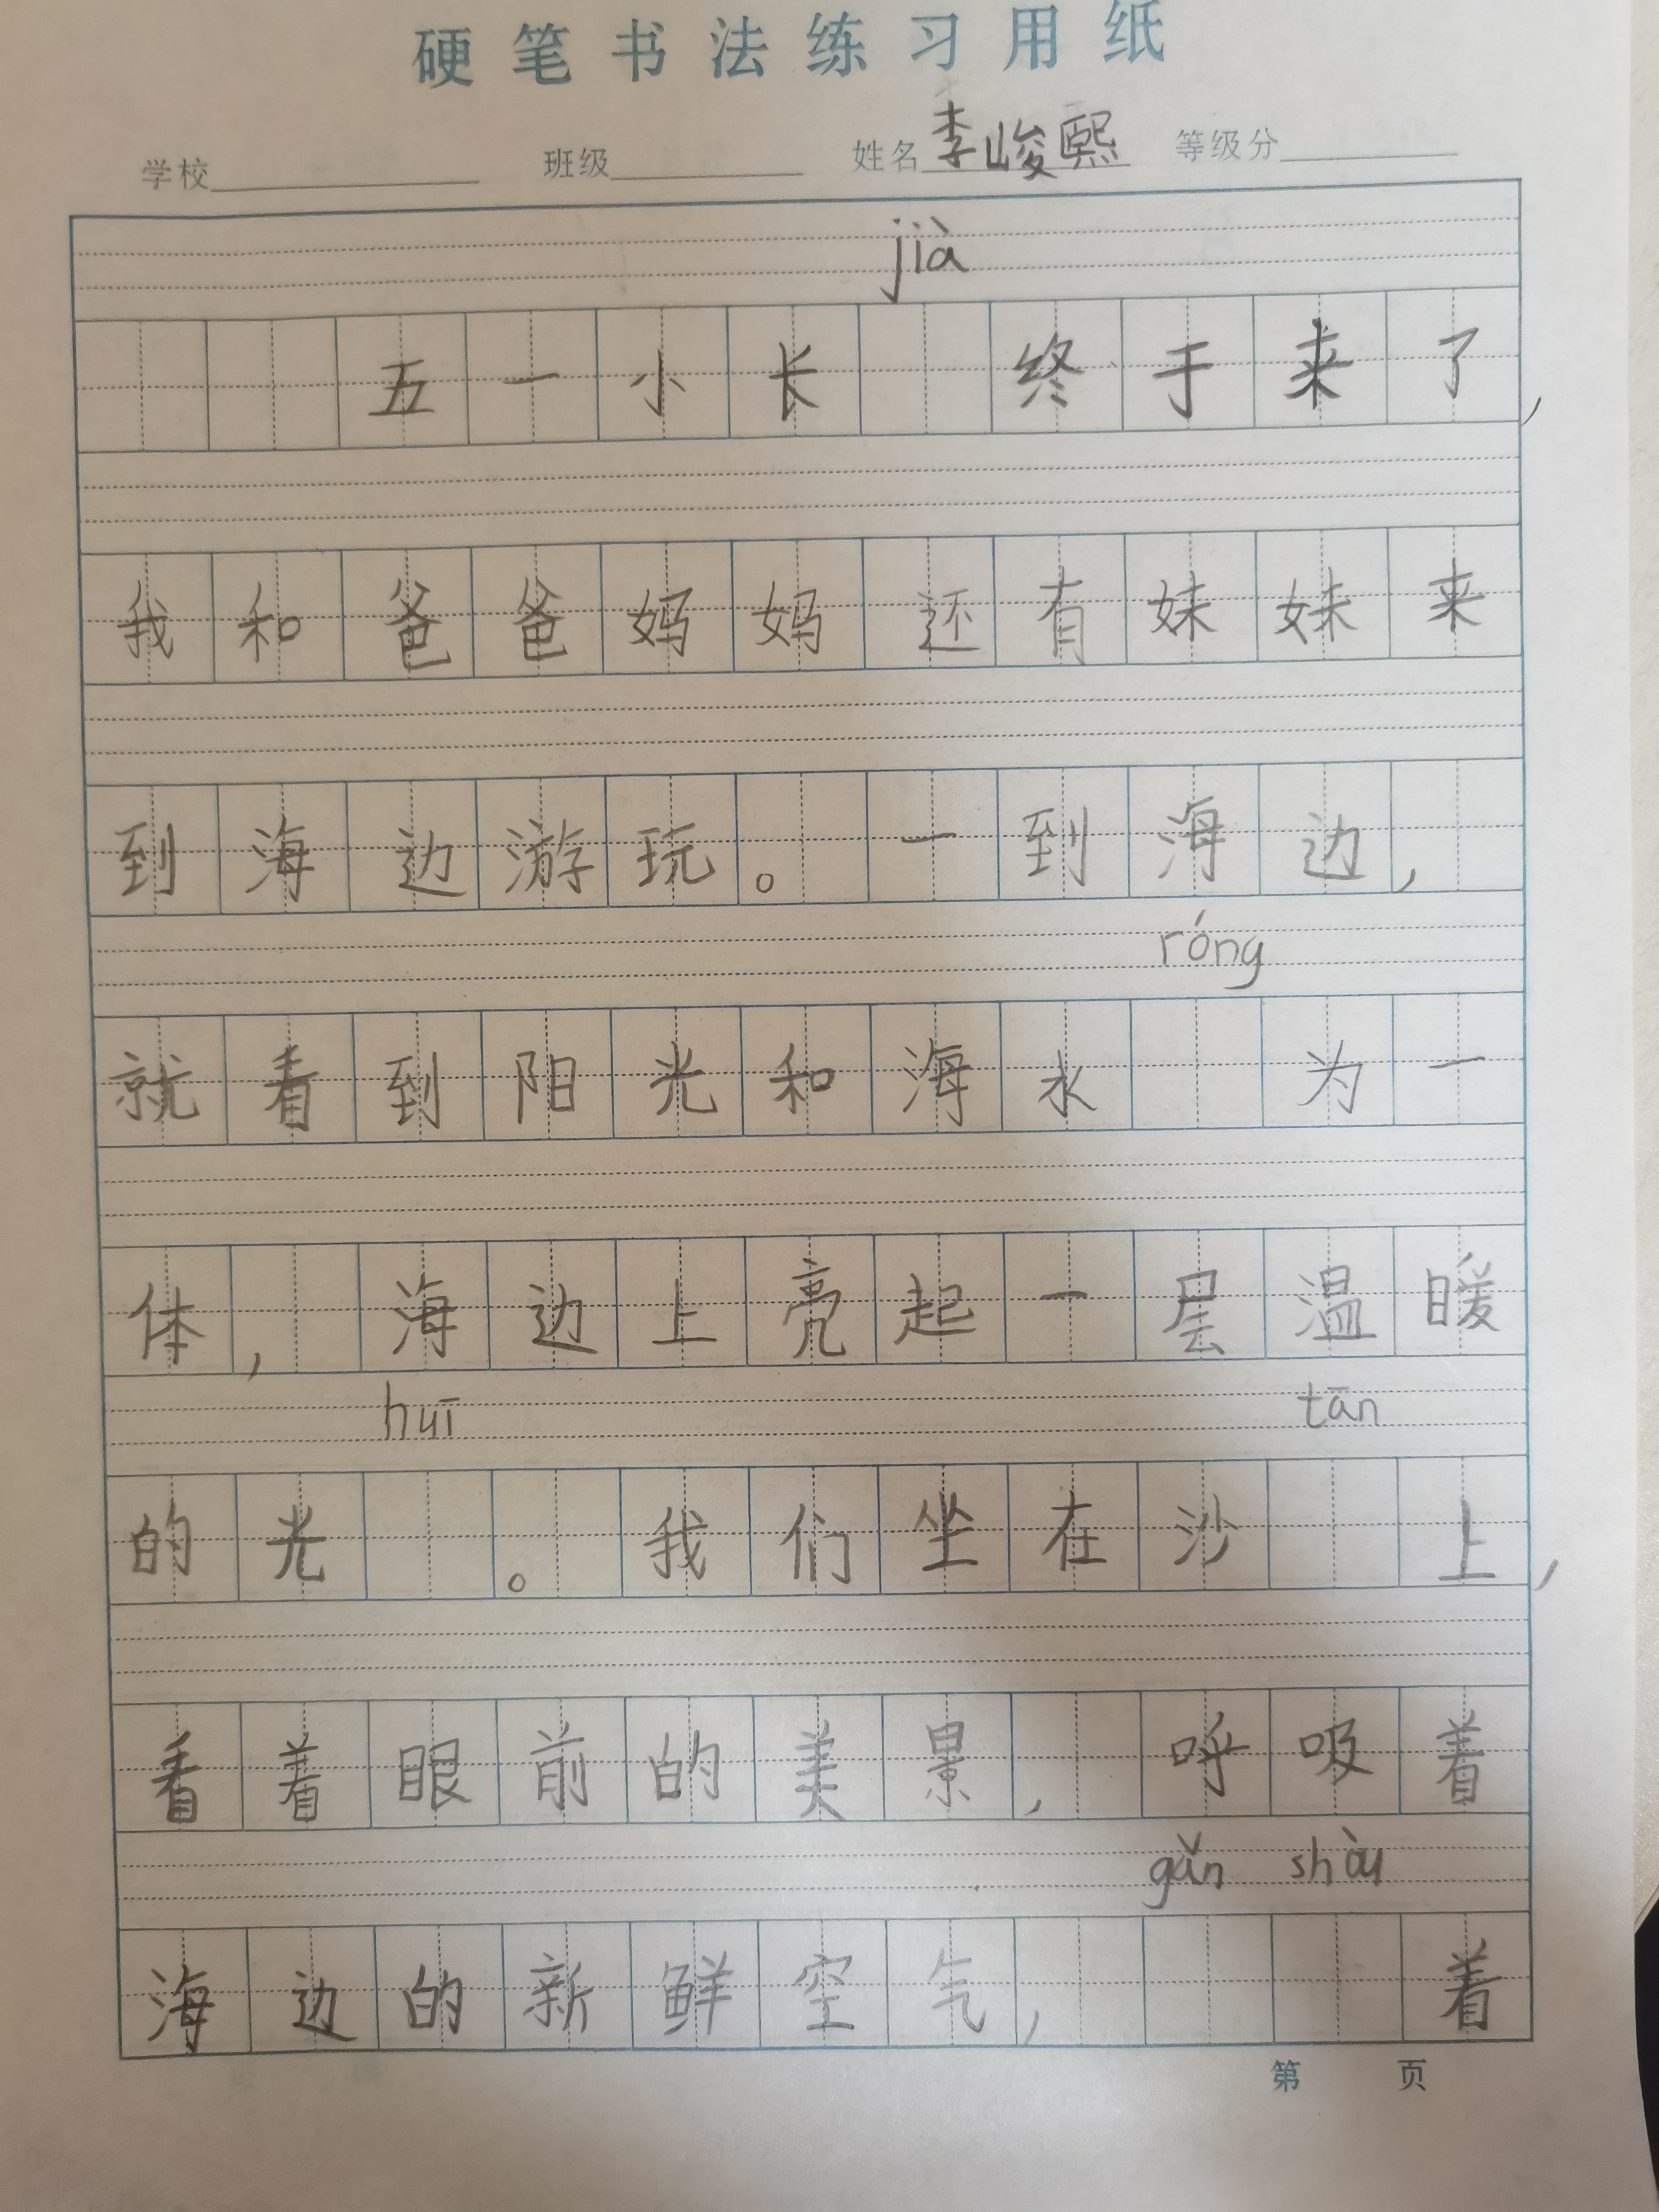 硬笔书法练习用纸
学校 班级 姓名 李峻熙 等级分
jià
五一小长 终于来了，
我和爸爸妈妈还有妹妹来
到海边游玩。一到海边，
róng
就看到阳光和海水 为一
体，海边上亮起一层温暖
huī tān
的光 。我们坐在沙 上，
看着眼前的美景，呼吸着
gǎn shòu
海边的新鲜空气， 着
第 页